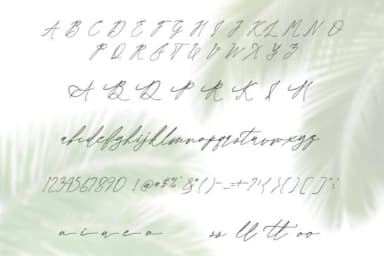 A B C D E F G H I J K L M N O
P Q R S T U V W X Y Z
A B D P R K S H
abcdefghijklmnopqrstuvwxyz
1234567890 !@#$%
a i u e o ss ll tt oo